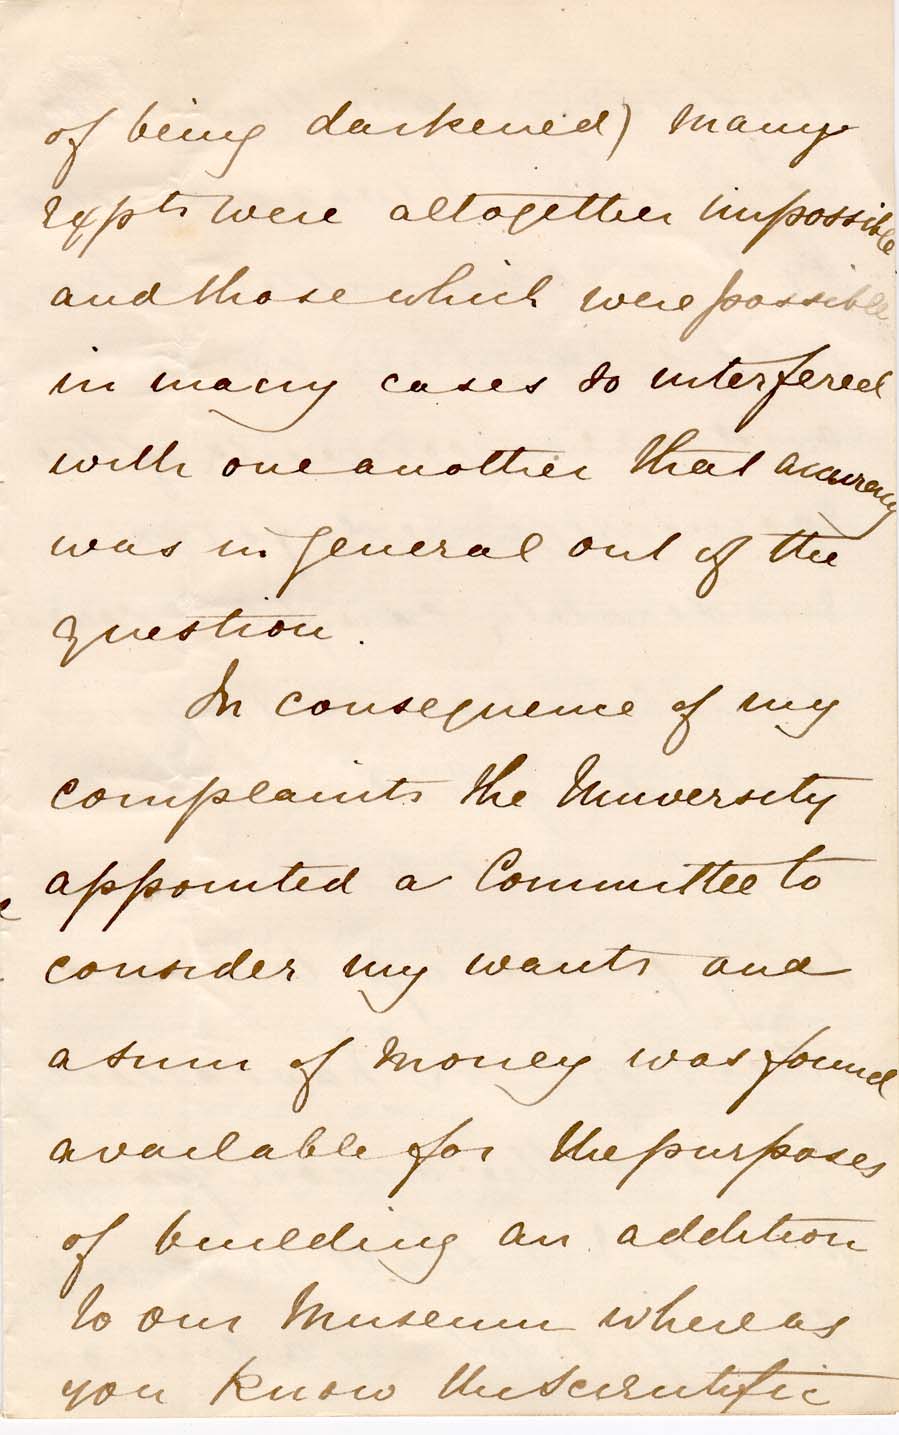 of being darkened) many
expts were altogether impossible
and those which were possible
in many cases so interfered
with one another that accuracy
was in general out of the
question.
In consequence of my
complaints the University
appointed a Committee to
consider my wants and
a sum of money was found
available for the purposes
of building an addition
to our Museum where as
you know the Scientific